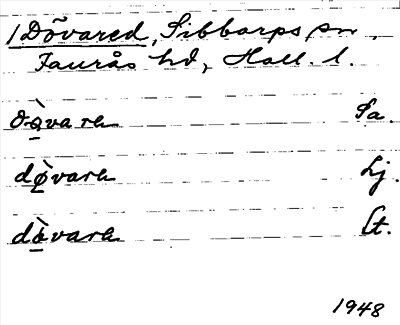 /Dövared, Sibbarps sn,
Faurås hd, Hall. l.
dø̱̀vara Sa.
dø̱̀vara Lj.
dø̱̀vara Lt.
1948